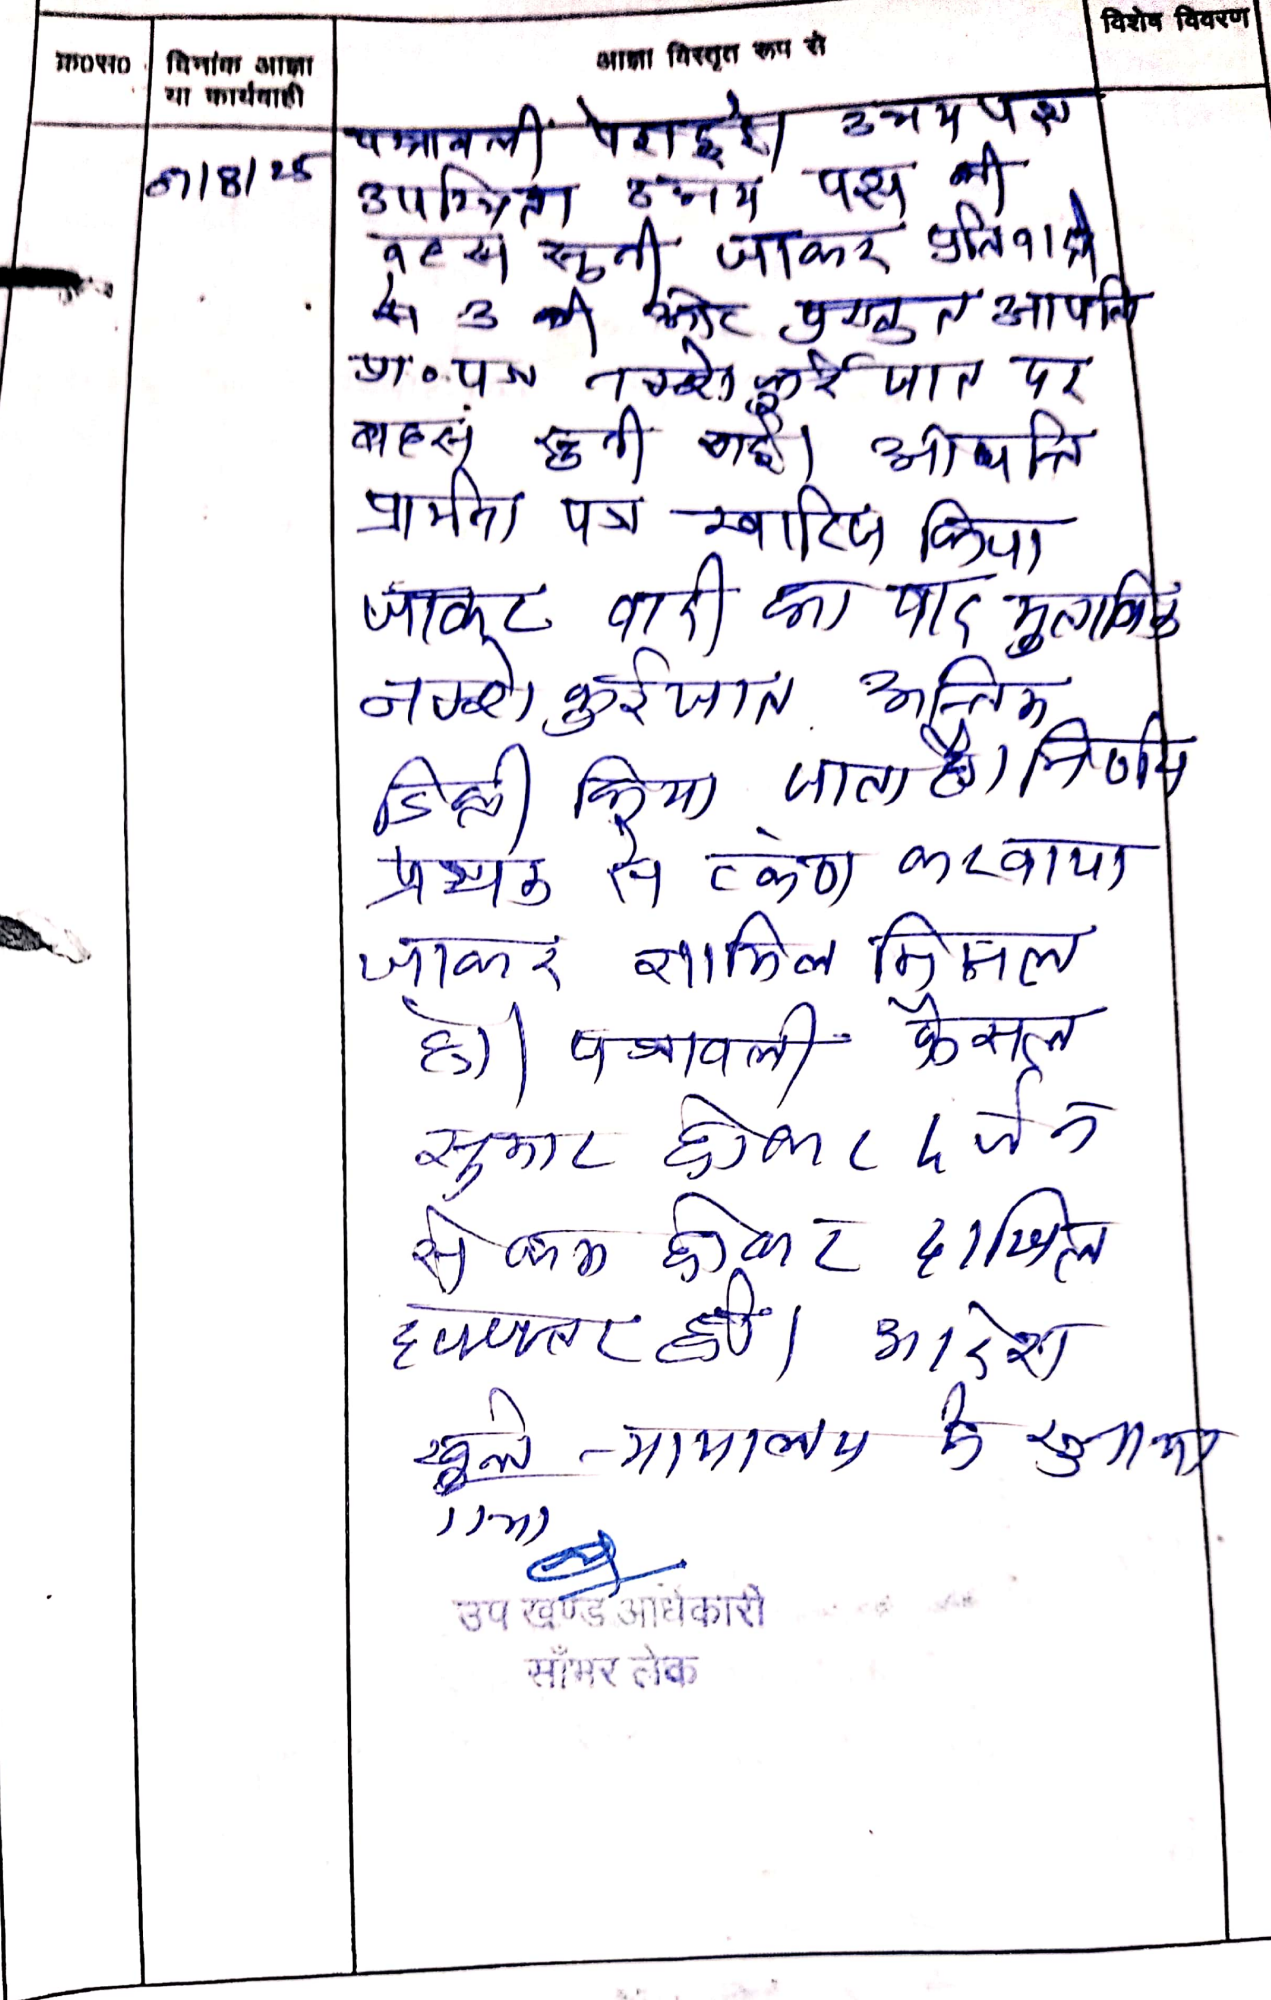 विशेष विवरण
क्र0सं0 दिनांक आज्ञा आज्ञा विस्तृत रूप से
या कार्यवाही
पत्रावली पेश हुई। उभय पक्ष
7/8/25 उपस्थित। उभय पक्ष की
बहस सुनी जाकर प्रतिवादी
सं 3 की ओर प्रस्तुत आपत्ति
प्रा०पत्र नक्शे कुर्रेजात पर
बहस सुनी गई। आपत्ति
प्रार्थना पत्र खारिज किया
जाकर वादी का वाद मुताबिक
नक्शे कुर्रेजात अन्तिम
डिक्री किया जाता है। निर्णय
पृथक से टंकण करवाया
जाकर शामिल मिसल
हो। पत्रावली फैसल
सुमार होकर दर्ज
से कम होकर दाखिल
दफ्तर हो। आदेश
खुले न्यायालय में सुनाया
गया
उप खण्ड अधिकारी
साँभर लेक